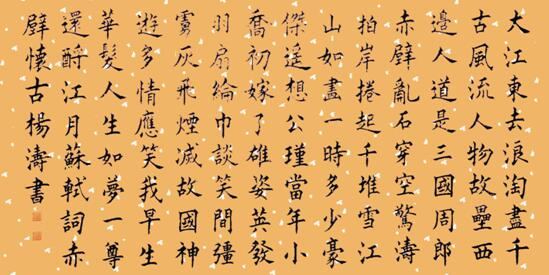 大江東去浪淘盡千
古風流人物故壘西
邊人道是三國周郎
赤壁亂石穿空驚濤
拍岸捲起千堆雪江
山如畫一時多少豪
傑遙想公瑾當年小
喬初嫁了雄姿英發
羽扇綸巾談笑間彊
虜灰飛煙滅故國神
遊多情應笑我早生
華髮人生如夢一尊
還酹江月蘇軾詞赤
壁懷古楊濤書